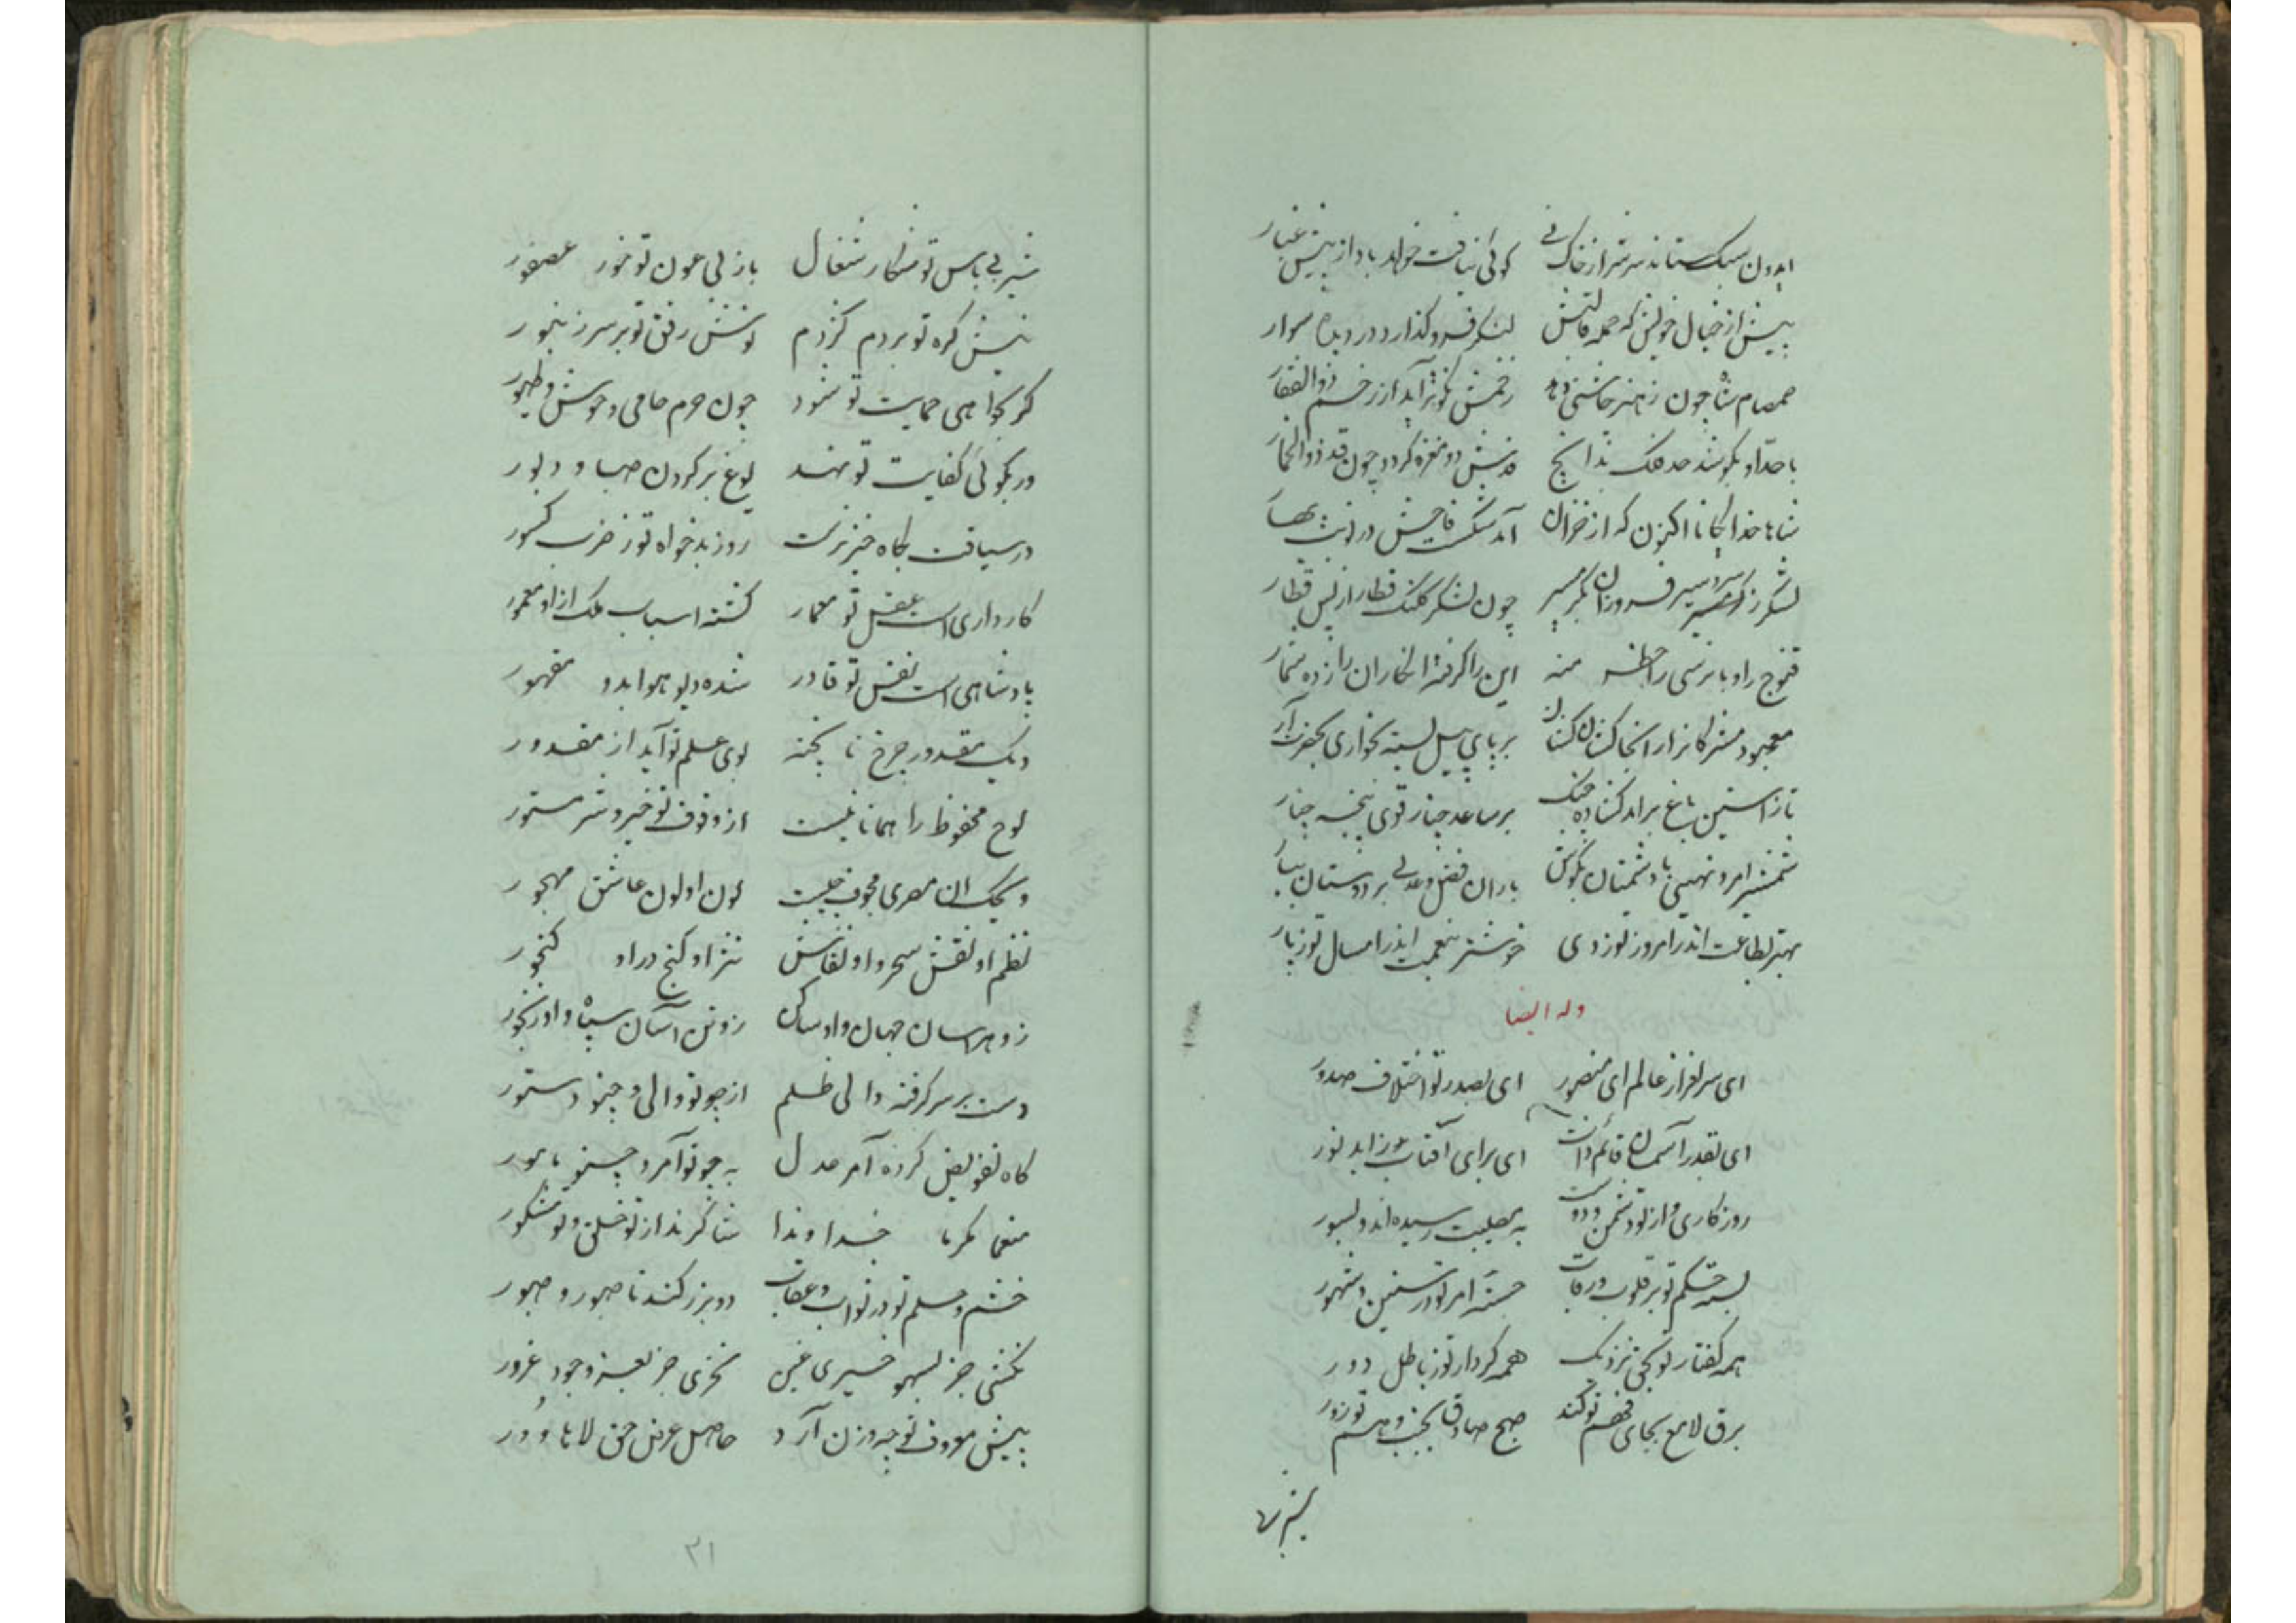 ایدون سبک ستاند سر سر از خاک فی گوئی نیافت خواهد باد از پیش غبار
پیش از خیال خویش که حمله قالبش لنگر فرو گذارد در دیده سوار
صمصام شاه چون ز هنر چاشنی دهد زخمش نکوتر آید از زخم ذوالفقار
با حد او بکوشد حد فلک بدانچ قدش دو مغزه گردد چون قد ذوالخمار
شاها خدایگانا اکنون که از خزان آمد شکست فاحش در لشگر بهار
لشکر ز گرمسیر سردسیر فروزان بگرمسیر چون لشکر کلنگ قطار از پس قطار
قنوج راو با نرسی را خطنه منه این را گرفته انگار آن را زده شمار
معبود مشرکانرا از آنجا کشان کشان بر پای پیل بسته بخواری بحضرت آر
تا ز آستین باغ برآید گشاده چنگ بر ساعد چنار قوی پنجه چنار
شمشیر امر و نهیی با دشمنان بکوش باران فضل و عدلی بر دوستان ببار
بهتر بطاعت اندر امروز تو ز دی خوشتر بنعمت اندر امسال تو ز پار
وله ایضا
ای سرافراز عالم ای منصور ای بصدر تو اختلاف صدور
ای بقدر آسمان قائم ذات ای برای آفتاب زاید نور
روزگاری و از تو دشمن و دوست به مصیبت رسیده‌اند و بسور
بسته حکم تو بر قلوب و رقاب جسته امر تو در سنین و شهور
همه گفتار تو بحق نزدیک همه کردار تو ز باطل دور
برق لامع بجای فهم تو کند صبح صادق بجنب وهم تو زور
شیر بی
شیر بی باس تو شکار شغال باز بی عون تو خور عصفور
نیش کره تو بر دم کژدم نوش رفق تو بر سر زنبور
گر بخواهی حمایت تو شود چون حرم حامی وحوش و طیور
ور بگوئی کفایت تو نهد یوغ بر گردن صبا و دبور
در سیاقت نگاه خیز ترست روز بدخواه تو ز ضرب کسور
کارداری است عقل تو معمار گشته اسباب ملک از او معمور
پادشاهی است نفس تو قادر شده دیو هوا بدو مقهور
دیگ مقدور چرخ نا پخته بوی علم تو آید از مقدور
لوح محفوظ را همانا نیست از وقوف تو خیر و شر مستور
ویک آن مصری مجوف چیست لون او لون عاشق مهجور
نظم او نقش سحر و او نقاش نثر او گنج در او گنجور
زو هراسان جهان و او ساکن زو تن آسان سپاه و او رنجور
دست بر سر گرفته والی ظلم از چو تو والی و چنو دستور
کاه تفویض کرده آمر عدل به چو تو آمر و چنو مامور
منعما مکرما خداوندا شاکرند از تو خلق و تو مشکور
خشم و حلم تو در ثواب و عقاب دو بزرگند نا صبور و صبور
نکشی جز بسهو خسری غبن نخری جز بعشوه وجود غرور
پیش معروف تو چه وزن آرد حاصل عرض حق لاها و ودر
۳۱